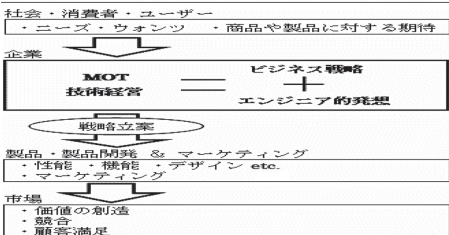 社会・消費者・ユーザー
・ニーズ・ウォンツ ・商品や製品に対する期待
企業
MOT
技術経営
＝
ビジネス戦略
＋
エンジニア的発想
戦略立案
製品・製品開発 & マーケティング
・性能 ・機能 ・デザイン etc.
・マーケティング
市場
・価値の創造
・競合
・顧客満足